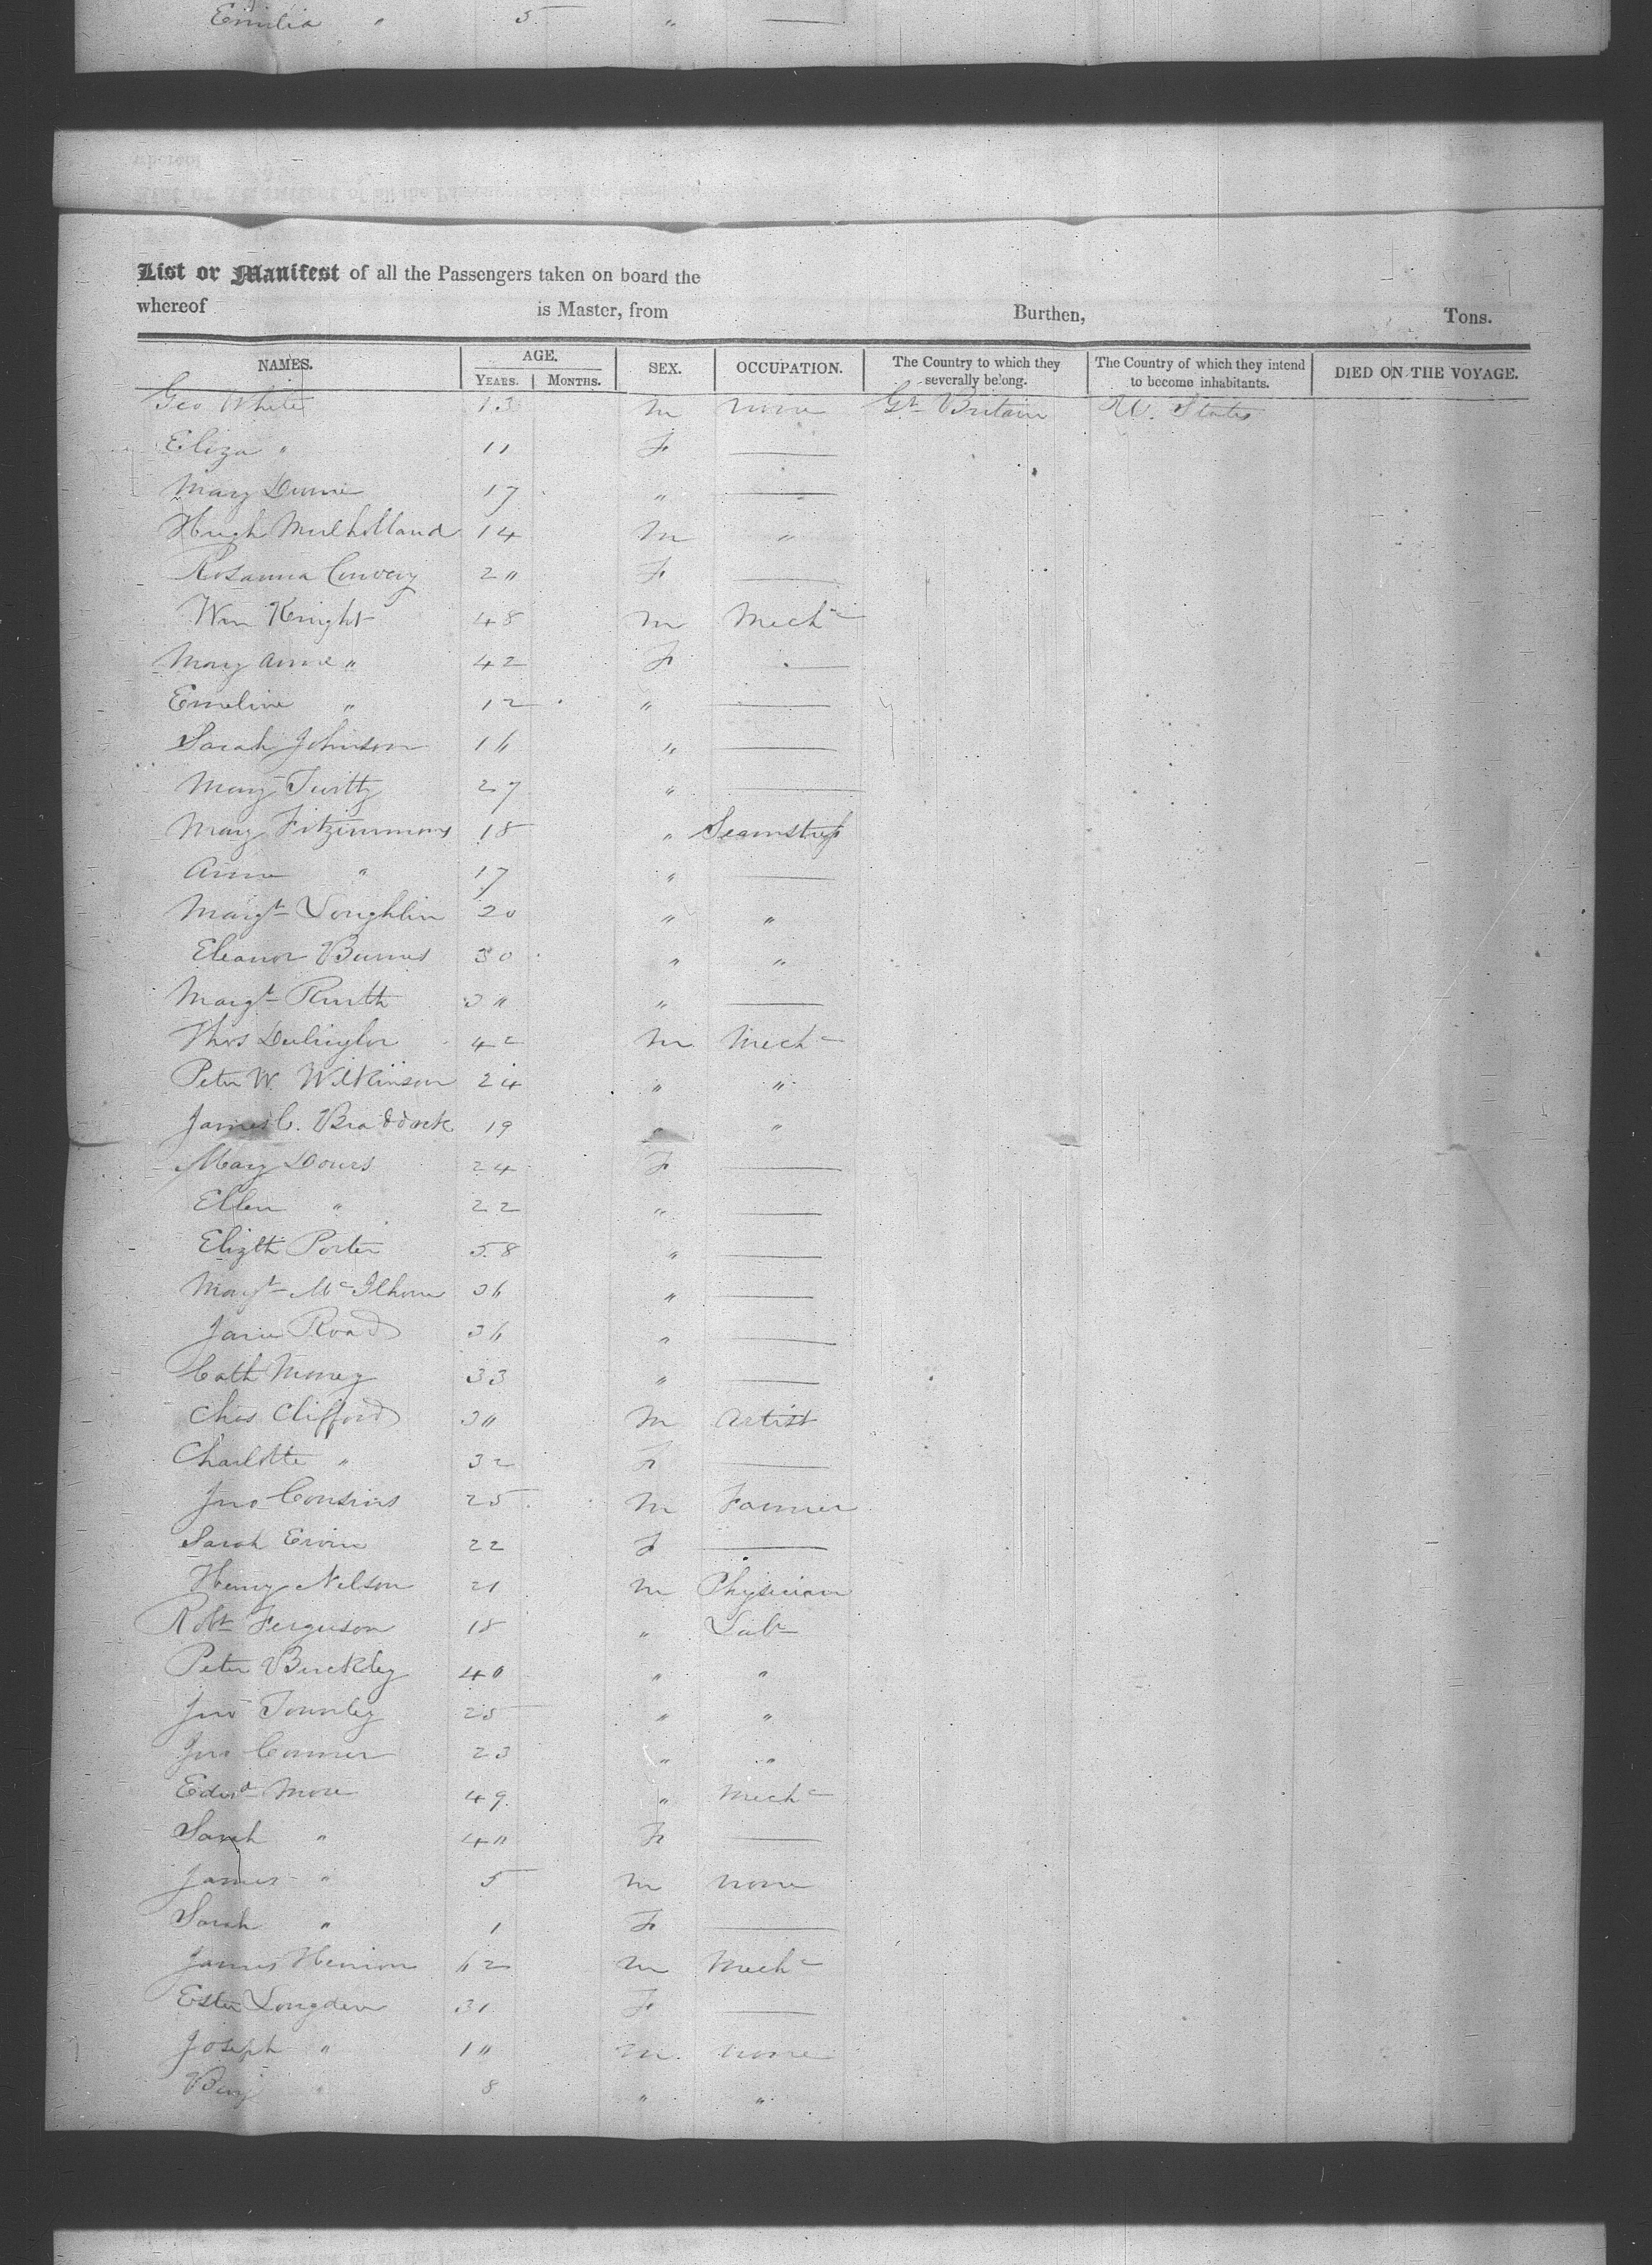 Emilia " 5 " —
List or Manifest of all the Passengers taken on board the
whereof is Master, from Burthen, Tons.
NAMES. AGE. SEX. OCCUPATION. The Country to which they severally belong. The Country of which they intend to become inhabitants. DIED ON THE VOYAGE.
YEARS. MONTHS.
Geo White 13 m none Gt Britain U. States
Eliza " 11 F —
Mary Dunne 17 " —
Hugh Mulholland 14 m "
Rosanna Conway 2" F —
Wm Knight 48 m Mechc
Mary Anne " 42 F —
Emeline " 12 " —
Sarah Johnson 16 " —
Mary Twitty 27 " —
Mary Fitzimmons 18 " Seamstress
Anne " 17 " —
Margt Loughlin 20 " "
Eleanor Burnes 30 " "
Margt 3" " —
Thos 42 m Mechc
Peter W. Wilkinson 24 " "
James C. Braddock 19 " "
Mary Dours 24 F —
Ellen " 22 " —
Elizth Porter 58 " —
Margt McIlhone 36 " —
Jane Road 36 " —
Cath Money 33 " —
Chas Clifford 3" m Artist
Charlotte " 32 F —
Jno Cousins 25 m Farmer
Sarah Ervin 22 F —
Henry Nelson 21 m Physician
Robt Ferguson 18 " Labr
Peter Buckley 40 " "
Jno Townley 25 " "
Jno Conner 23 " "
Edwd More 49 " Mechc
Sarah " 4" F —
James " 5 m none
Sarah " 1 F —
James Henion 62 m Mechc
Ester Longden 31 F —
Joseph " 1" m none
Benj " 8 " "